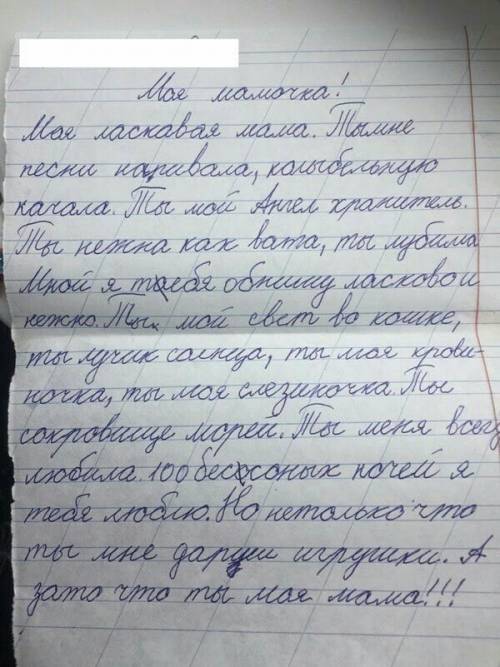 Моя мамочка!
Моя ласкавая мама. Тымне
песни наривала, колыбельную
качала. Ты мой Ангел хранитель.
Ты нежна как вата, ты лубима
Мной я тебя обнииму ласковои
нежно. Ты мой свет во кошке,
ты лучик солнца, ты моя крови-
ночка, ты моя слезиночка. Ты
сокровище морей. Ты меня всегд
любила. 100 бессоных ночей я
тебя люблю. Но нетолько что
ты мне даруеи игрушки. А
зато что ты моя мама!!!